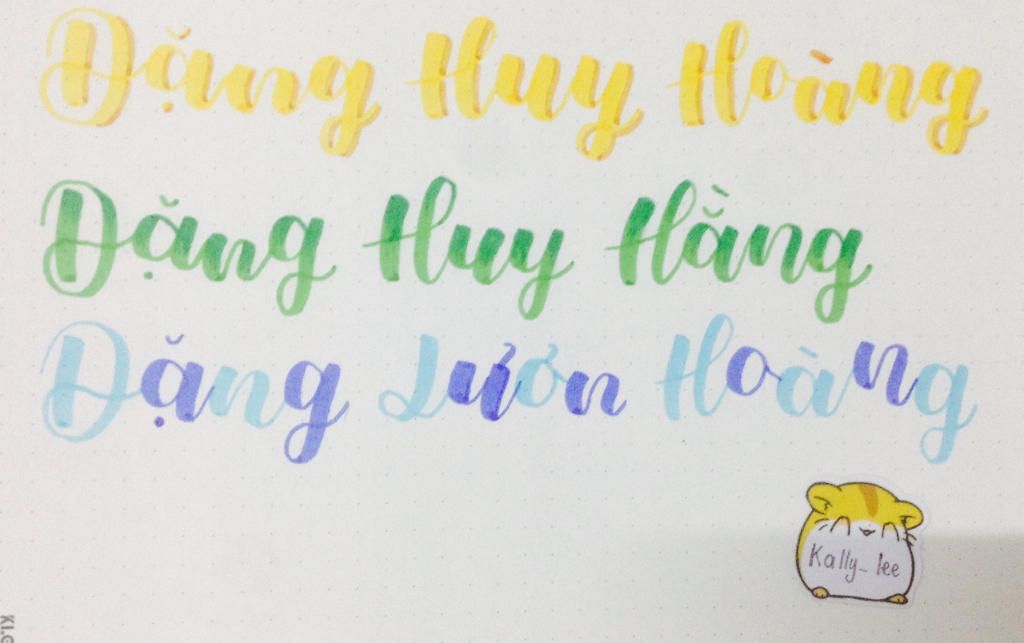 Đặng Huy Hoàng
Đặng Huy Hằng
Đặng Lươn Hoàng
Kally_lee